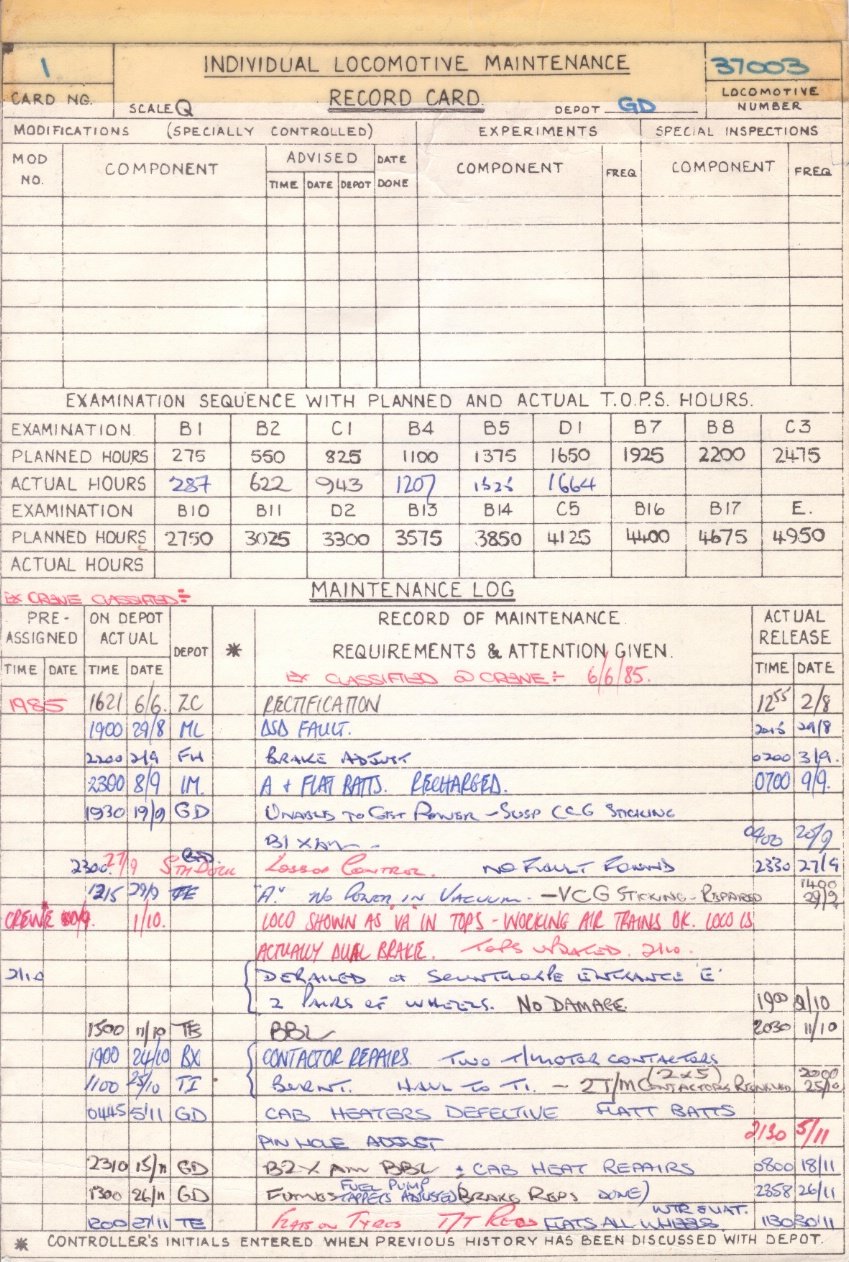 1 INDIVIDUAL LOCOMOTIVE MAINTENANCE 37003
CARD NO. SCALE Q RECORD CARD. DEPOT GD LOCOMOTIVE NUMBER
MODIFICATIONS (SPECIALLY CONTROLLED) EXPERIMENTS SPECIAL INSPECTIONS
MOD NO. COMPONENT ADVISED DATE DONE COMPONENT FREQ COMPONENT FREQ
TIME DATE DEPOT
EXAMINATION SEQUENCE WITH PLANNED AND ACTUAL T.O.P.S. HOURS.
EXAMINATION B1 B2 C1 B4 B5 D1 B7 B8 C3
PLANNED HOURS 275 550 825 1100 1375 1650 1925 2200 2475
ACTUAL HOURS 287 622 943 1207 1664
EXAMINATION B10 B11 D2 B13 B14 C5 B16 B17 E.
PLANNED HOURS 2750 3025 3300 3575 3850 4125 4400 4675 4950
ACTUAL HOURS
MAINTENANCE LOG
EX CREWE CLASSIFIED:-
PRE-ASSIGNED ON DEPOT ACTUAL DEPOT * RECORD OF MAINTENANCE REQUIREMENTS & ATTENTION GIVEN. ACTUAL RELEASE
TIME DATE TIME DATE EX CLASSIFIED @ CREWE:- 6/6/85. TIME DATE
1985 1621 6/6. ZC RECTIFICATION 1255 2/8
1900 29/8 ML DSD FAULT. 29/8
2200 2/9 FH BRAKE ADJUST 0200 3/9.
2300 8/9 IM. A + FLAT BATTS. RECHARGED. 0700 9/9.
1930 19/9 GD UNABLE TO GET POWER - SUSP CCG STICKING
B1 XAM 0400 20/9
2300 27/9 STH DOCK LOSS OF CONTROL. NO FAULT FOUND 2330 27/9
1215 29/9 TE "A." NO POWER IN VACUUM. - VCG STICKING - REPAIRED 1400 29/9
CREWE 1/10. LOCO SHOWN AS "VA" IN TOPS - WORKING AIR TRAINS OK. LOCO IS
ACTUALLY DUAL BRAKE. TOPS UPDATED. 2/10.
2/10 DERAILED at SCUNTHORPE ENTRANCE 'E'
2 PAIRS OF WHEELS. NO DAMAGE 1900 2/10
1500 11/10 TE BBL 2030 11/10
1900 24/10 BX CONTACTOR REPAIRS. TWO T/MOTOR CONTACTORS
1100 25/10 TI BURNT. HAUL TO TI. - 2 T/M CONTACTORS RENEWED (2 x 5) 2000 25/10
0445 5/11 GD CAB HEATERS DEFECTIVE FLATT BATTS
PIN HOLE ADJUST 2130 5/11
2310 15/11 GD B2 XAM BBL + CAB HEAT REPAIRS 0800 18/11
1300 26/11 GD FUMES FUEL PUMP (TAPPETS ADJUSTED) (BRAKE REPS DONE) 2358 26/11
1200 27/11 TE FLATS ON TYRES T/T REQS FLATS ALL WHEELS. 1130 30/11
* CONTROLLER'S INITIALS ENTERED WHEN PREVIOUS HISTORY HAS BEEN DISCUSSED WITH DEPOT.